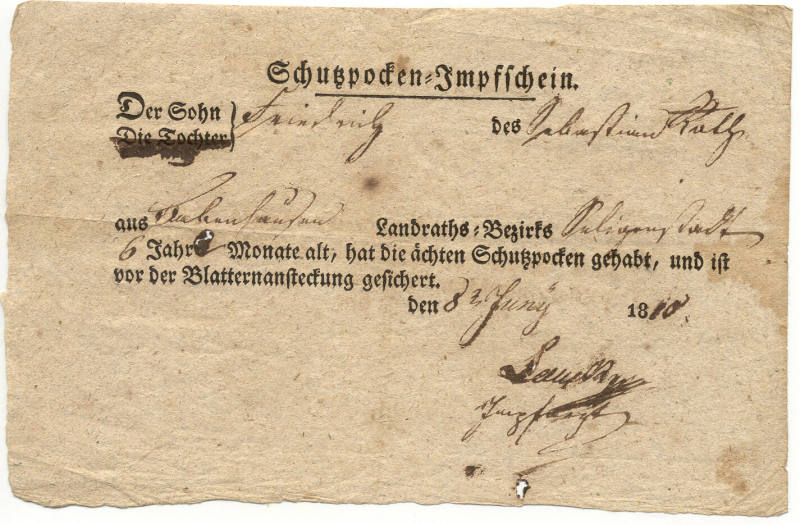 Schutzpocken-Impfschein.
Der Sohn Friedrich des Sebastian Roth
Die Tochter
aus Babenhausen Landraths-Bezirks Seligenstadt
6 Jahr Monate alt, hat die ächten Schutzpocken gehabt, und ist
vor der Blatternansteckung gesichert.
den 8 Juny 18
Impfarzt